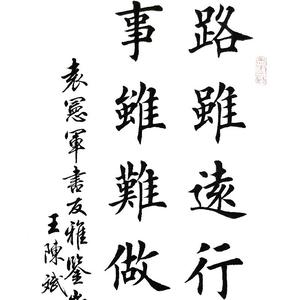 路雖遠行
事雖難做
袁憲軍書友雅鑒
王陳斌